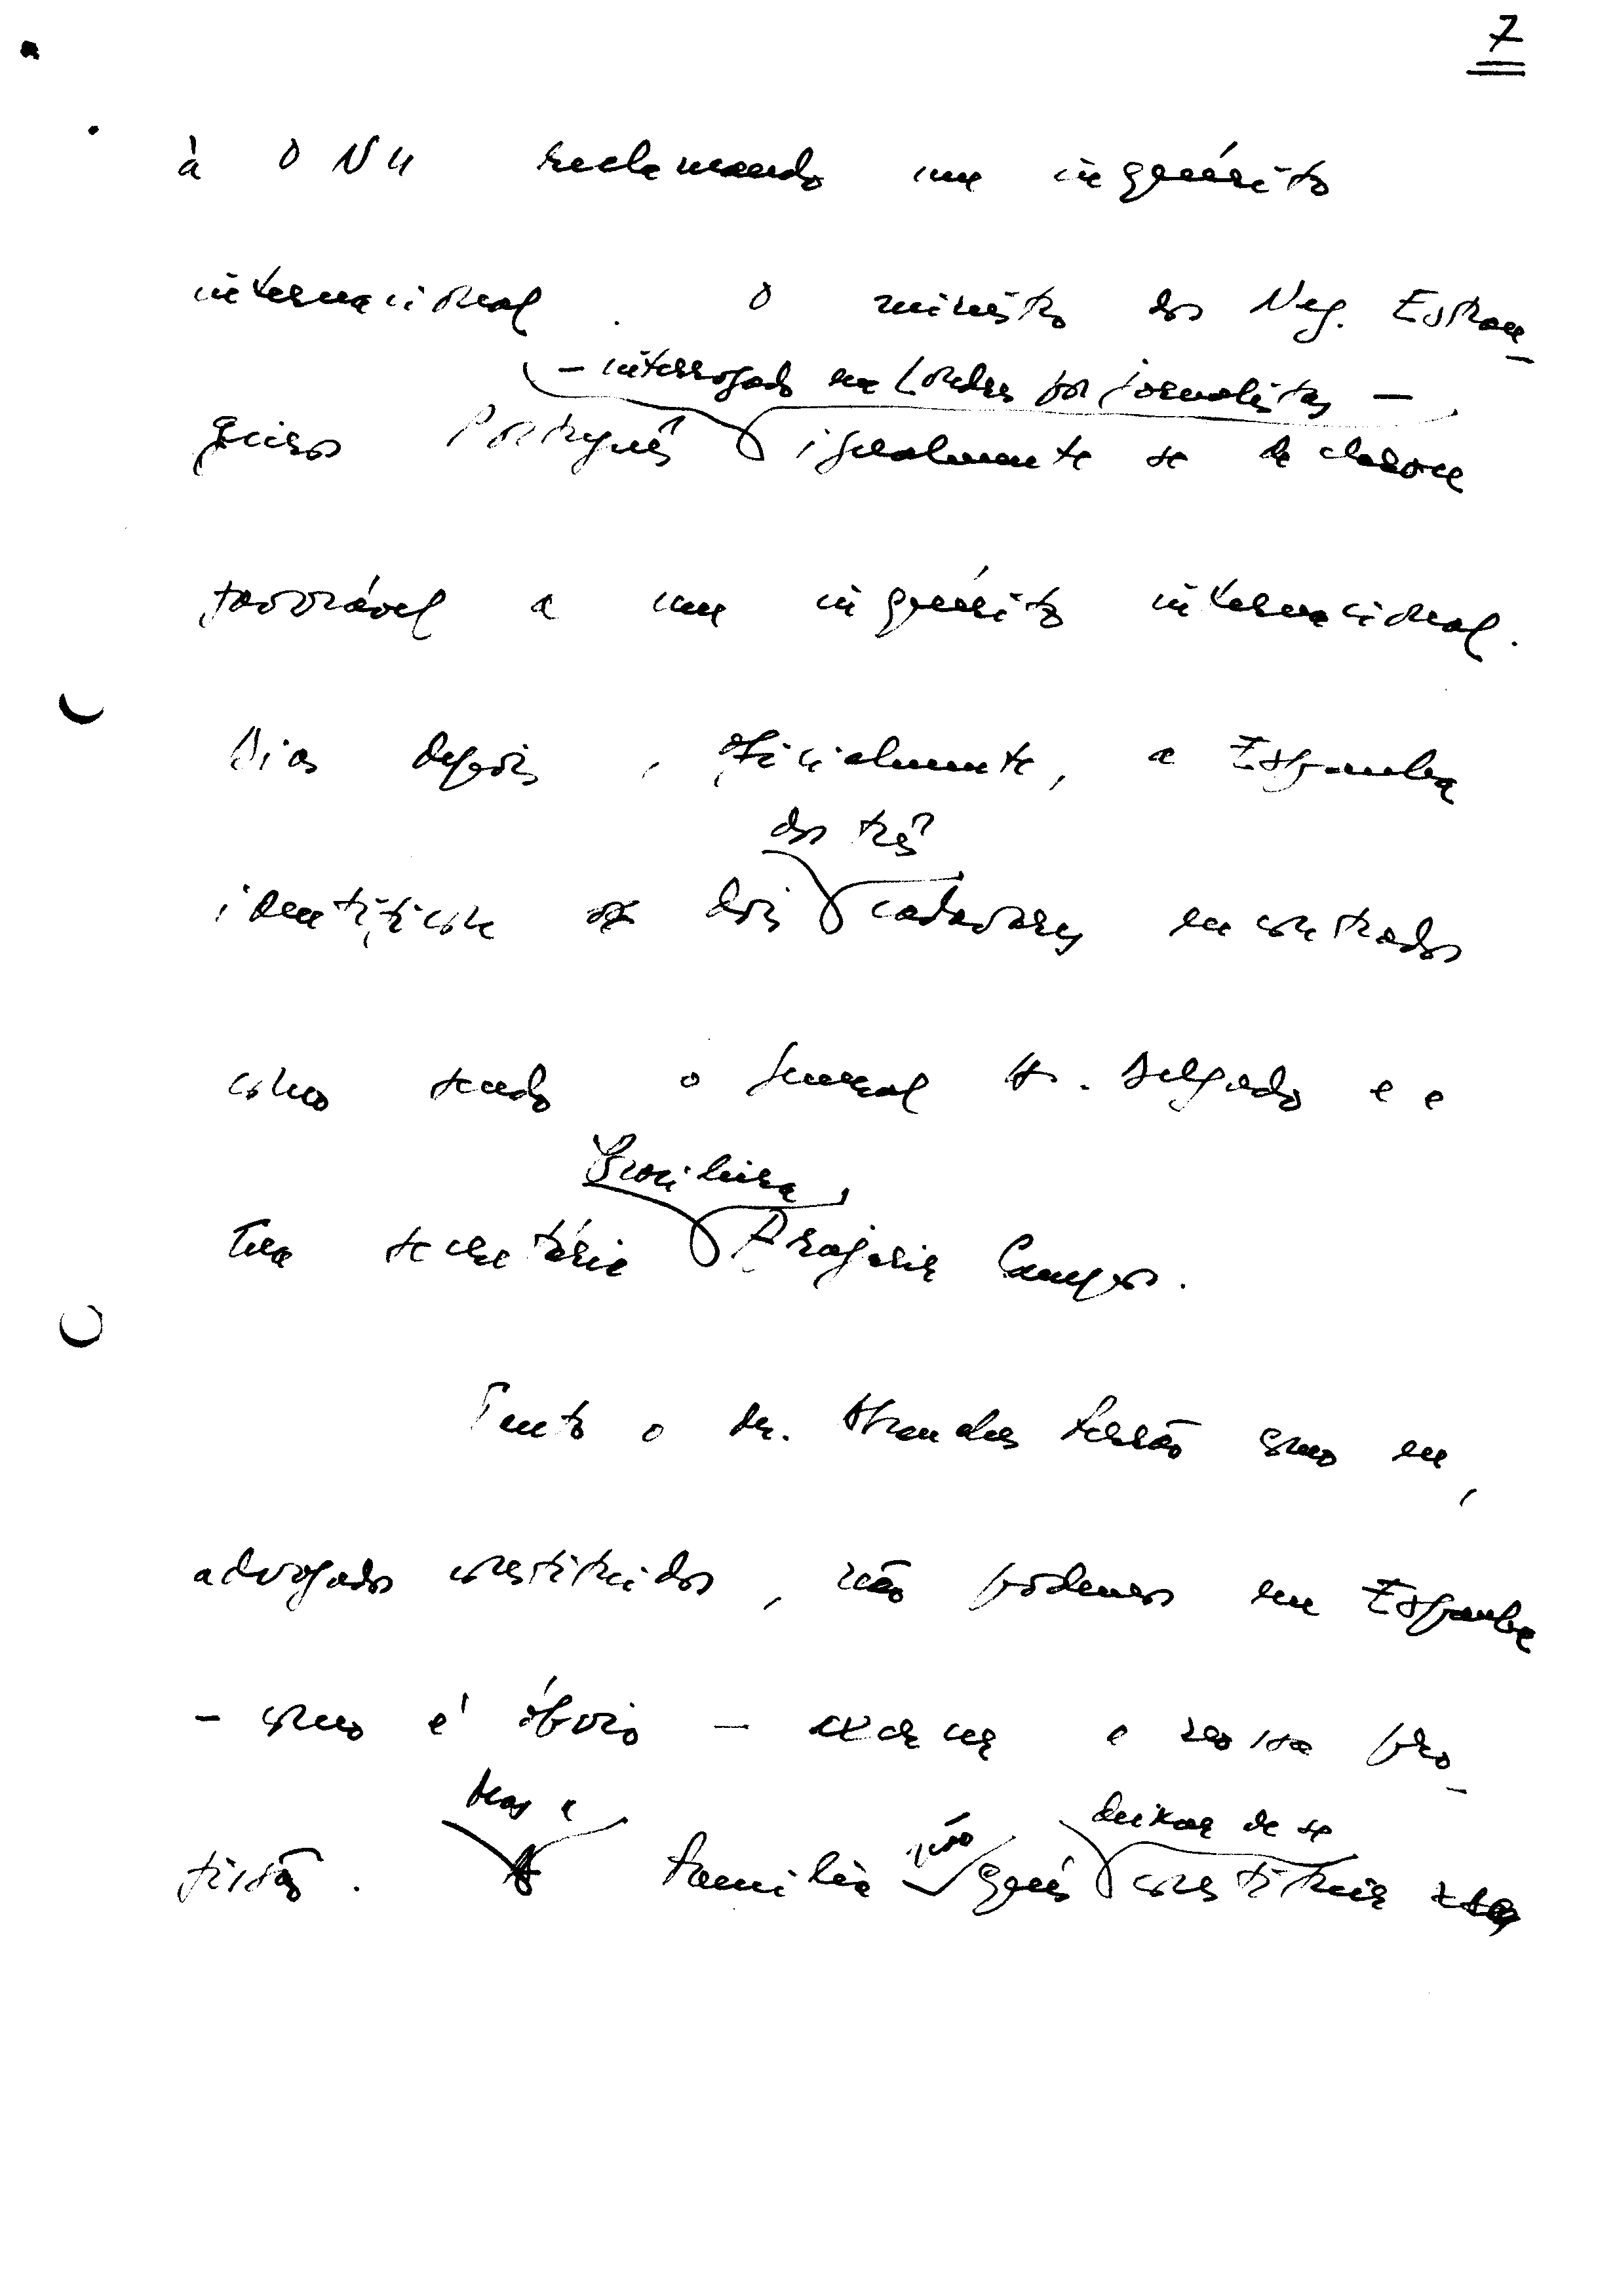 7
à ONU reclamando um inquérito
internacional. O ministro dos Neg. Estran-
– interrogado em Londres por jornalistas –
geiros Português igualmente se declarou
favorável a um inquérito internacional.
Dias depois, oficialmente, a Espanha
dos três
identificou dois cadáveres encontrados
como sendo o general H. Delgado e a
brasileira,
sua secretária Arajarir Campos.
Tanto o dr. Abranches Ferrão como eu,
advogados constituídos, não podemos em Espanha
– como é óbvio – exercer a nossa pro-
mas a
deixar de se
fissão. família não quis constituir